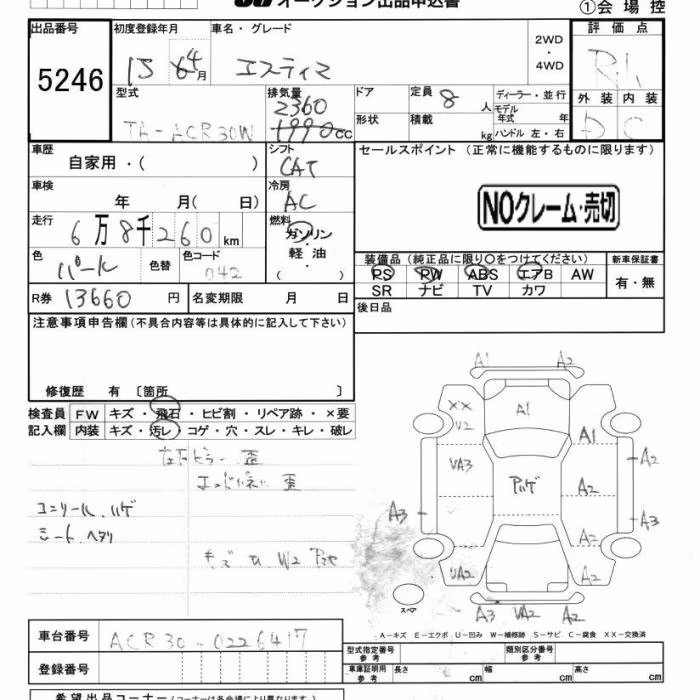 オークション出品申込書 ①会場控
出品番号 初度登録年月 車名・グレード 2WD・4WD 評価点
5246 15 6 4月 エスティマ
型式 排気量 ドア 定員 8 人 ディーラー・並行 外装 内装
TA-ACR30W 2360 1990cc 形状 積載 kg モデル年式 年 ハンドル 左・右 D C
車歴 シフト セールスポイント (正常に機能するものに限ります)
自家用・( ) CAT
車検 冷房
年 月( 日) AC NOクレーム・売切
走行 燃料
6万8千260km ガソリン・軽油・( )
色 色替 色コード 装備品 (純正品に限り○をつけてください) 新車保証書
パール 042 PS PW ABS エアB AW 有・無
R券 13660 円 名変期限 月 日 SR ナビ TV カワ
注意事項申告欄(不具合内容等は具体的に記入して下さい) 後日品
修復歴 有 〔箇所 〕
検査員 FW キズ・飛石・ヒビ割・リペア跡・×要
記入欄 内装 キズ・汚レ・コゲ・穴・スレ・キレ・破レ
歪
歪
シート ヘタリ
キズ
A1 A2
XX A1
V2 A1
VA3 A2 A2
A3 A3
A2
VA2 A2
スペア
A3 VA2 A2
A-キズ E-エクボ U-凹み W-補修跡 S-サビ C-腐食 XX-交換済
車台番号 ACR30-0226417
型式指定番号 参考 類別区分番号 参考
登録番号 車庫証明用 参考 長さ cm 幅 cm 高さ cm
希望出品コーナー(コーナーは各会場により異なります)